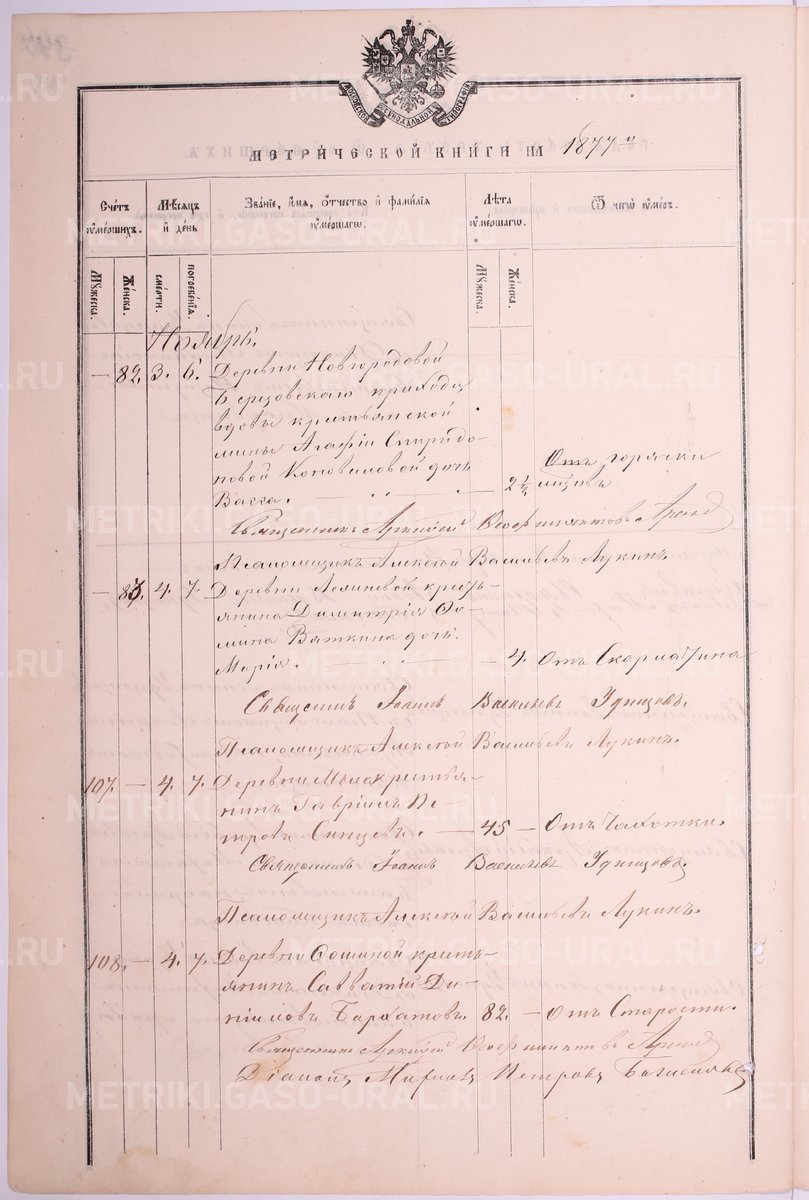 МОСКОВСКОЙ СѴНОДАЛЬНОЙ ТИПОГРАФІИ
МЕТРИЧЕСКОЙ КНИГИ НА 1877й
Счетъ ѹмершихъ.
Мѣсяцъ и день
Званіе, имя, отчество и фамилія ѹмершагѡ.
Лѣта ѹмершагѡ.
Ѿ чегѡ ѹмеръ.
Мѹжеска.
Женска.
смерти.
погребенія.
Мѹжеска.
Женска.
Ноябрь.
— 82. 3. 6. Деревни Новгородовой
Березовскаго прихода,
вдовы крестьянской
Агафіи Спиридо-
новой Коноваловой дочь
Васса. — 2½ Отъ горячки
Священникъ
Псаломщикъ Алексѣй Васильевъ Лукинъ
— 83. 4. 7. Деревни кресть-
янина Димитрія Ѳо-
мина Вяткина дочь
Марія. — 4. Отъ Скарлатина
Священникъ Іоаннъ Васильевъ Удинцовъ.
Псаломщикъ Алексѣй Васильевъ Лукинъ.
107. — 4. 7. Деревни Мыса крестья-
нинъ Гавріилъ Пе-
тровъ Синцевъ. — 45 — Отъ Чахотки.
Священникъ Іоаннъ Васильевъ Удинцовъ
Псаломщикъ Алексѣй Васильевъ Лукинъ.
108. — 4. 7. Деревни Ѳоминой кресть-
янинъ Савватій Да-
ніиловъ Бархатовъ. 82. — Отъ Старости.
Священникъ
Діаконъ Петровъ
METRIKI.GASO-URAL.RU